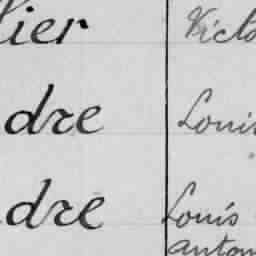 lier Victo
dre Louis
dre Louis
anton